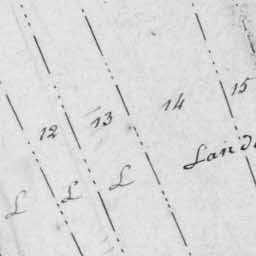 12 13 14 15
L L L Land